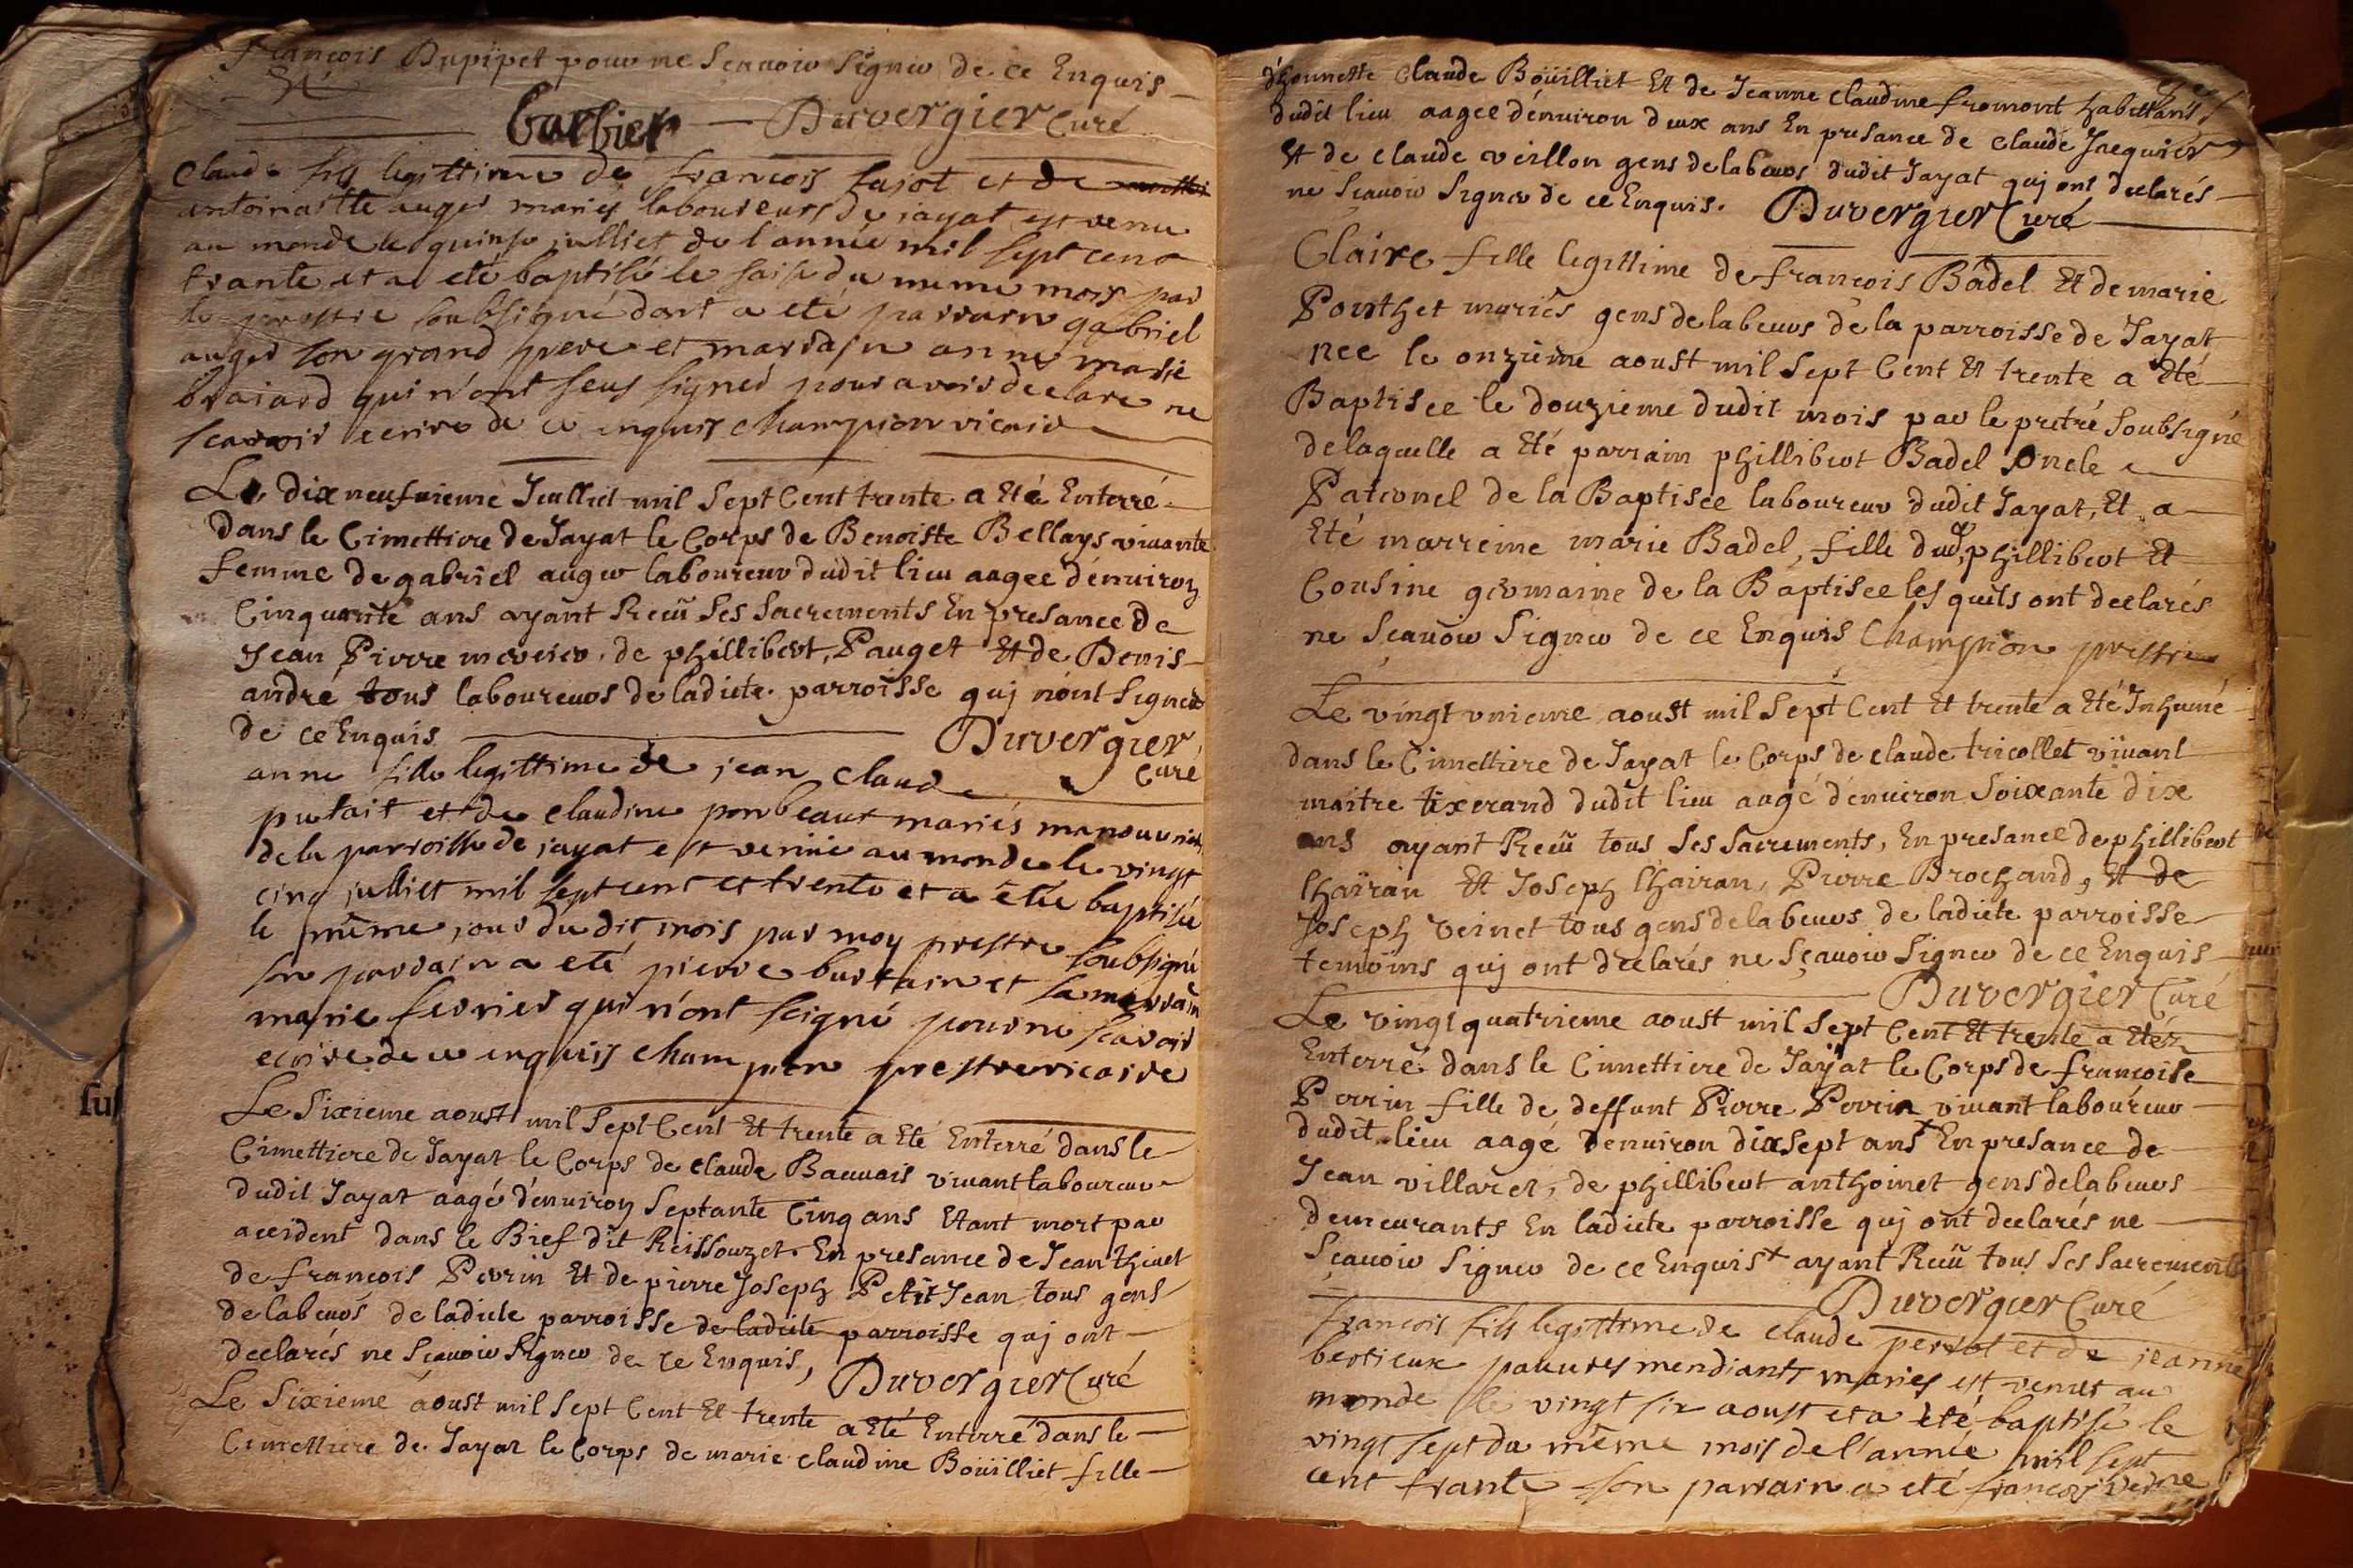 françois Dupipet pour ne Scauoir Signer de ce Enquis
Barbier Duvergier Curé
Claude fils legittime de françois fajot et de
antoinaitte auger mariés laboureurs de jayat est venu
au monde le quinse julliet de l'année mil sept cent
trante et a eté baptisé le saise du meme mois par
le prestre soubsigné dont a eté parrain gabriel
auger son grand pere et marrain anne marie
braiard qui n'ont seus signer pour avoir declare ne
scavoir ecrire de ce enquis champion vicaire
Le dix neufuieme Julliet mil Sept Cent trente a Eté Enterré
dans le Cimettiere de Jayat le Corps de Benoiste Bellays viuante
femme de gabriel auger laboureur dudit lieu aagee d'enuiron
Cinquante ans ayant Receü Ses Sacrements En presance de
Jean Pierre mercier, de phillibert, Pauget Et de Denis
andré tous laboureurs de ladicte parroisse quj n'ont Signer
de ce Enquis Duvergier
Curé
anne fille legittime de jean claude
putait et de claudine ponbeaut mariés manouvriers
de la parroisse de jayat est venüe au monde le vingt
cinq julliet mil sept cent et trente et a etée baptisée
le même jour du dit mois par moy prestre soubsigné
son parrain a eté pierre burtain et sa marrain
marie fevrier qui n'ont seigné pour ne scavoir
ecrire de ce enquis champion prestre vicaire
Le Sixieme aoust mil Sept Cent Et trente a Eté Enterré dans le
Cimettiere de Jayat le Corps de Claude Bauuais viuant laboureur
dudit Jayat aagé d'enuiron Septante Cinq ans Etant mort par
accident dans le Bief dit Reissouzet En presance de Jean thiuet
de françois Perrin Et de pierre Joseph Petit Jean tous gens
de labeurs de ladicte parroisse de ladicte parroisse quj ont
declarés ne Scauoir Signer de ce Enquis, Duvergier Curé
Le Sixieme aoust mil Sept Cent Et trente a Eté Enterré dans le
Cimettiere de Jayat le Corps de marie claudine Boüilliet fille
d'honneste Claude Boüilliet Et de Jeanne claudine fromont habittants
dudit lieu aagee d'enuiron deux ans En presance de Claude Jacquier
Et de claude veillon gens de labeurs dudit Jayat quj ont declarés
ne Scauoir Signer de ce Enquis. Duvergier Curé
Claire fille legittime de françois Badel Et de marie
Ponthet mariés gens de labeurs de la parroisse de Jayat
nee le onzieme aoust mil Sept Cent Et trente a Eté
Baptisee le douzieme dudit mois par le pretre Soubsigné
de laquelle a Eté parrain phillibert Badel Oncle
Paternel de la Baptisée laboureur dudit Jayat, Et a
Eté marreine marie Badel, fille dud phillibert Et
Cousine germaine de la Baptisee lesquels ont declarés
ne Scauoir Signer de ce Enquis Champion prestre
Le vingt vnieme aoust mil Sept Cent Et trente a Eté Inhumé
dans le Cimettiere de Jayat le Corps de claude tricollet viuant
maitre tixerand dudit lieu aagé d'enuiron Soixante dix
ans ayant Receü tous Ses Sacrements, En presance de phillibert
Chairan Et Joseph Chairan, Pierre Brochand, Et de
Joseph veinet tous gens de labeurs de ladicte parroisse
temoins quj ont declarés ne Scauoir Signer de ce Enquis
Duvergier Curé
Le vingt quatrieme aoust mil Sept Cent Et trente a Eté
Enterré dans le Cimettiere de Jayat le Corps de françoise
Perrin fille de deffunt Pierre Perrin viuant laboureur
dudit lieu aagé denuiron dix sept ans En presance de
Jean villaret, de phillibert anthoinet gens de labeurs
demeurants En ladicte parroisse quj ont declarés ne
Scauoir Signer de ce Enquis + ayant Receü tous Ses Sacrements
Duvergier Curé
francois fils legittime de claude perrot et de jeanne
bertieux pauvres mendiants mariés est venut au
monde le vingt six aoust et a été baptisé le
vingt sept du même mois de l'année mil sept
cent trante son parrain a eté francois verne